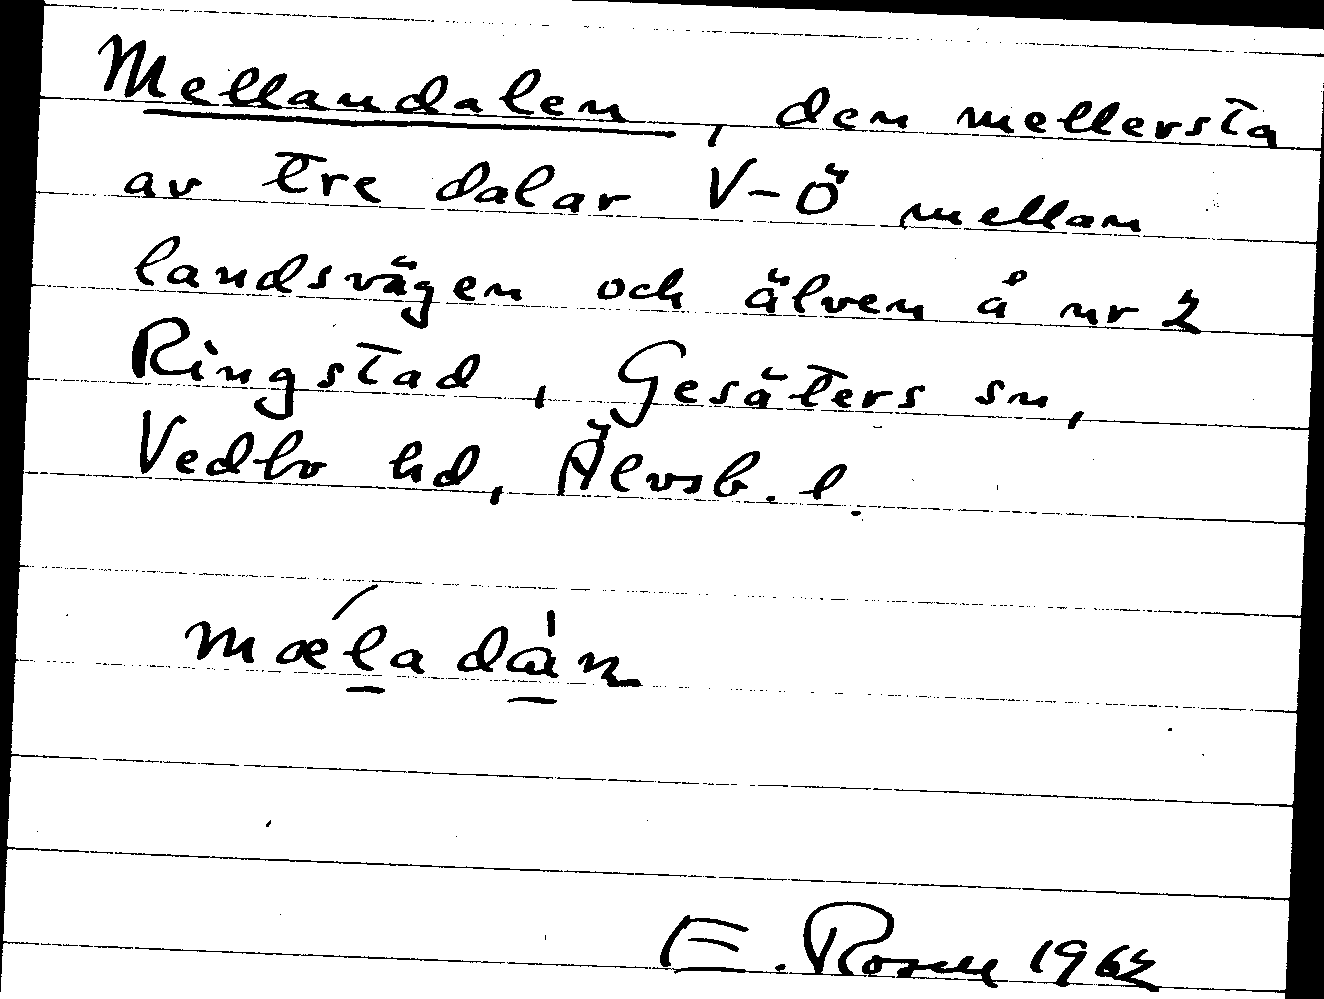 Mellandalen, den mellersta
av tre dalar V-Ö mellan
landsvägen och älven å nr 2
Ringstad, Gesäters sn,
Vedbo hd, Älvsb. l.
mǽladàn
E. Rosell 1962